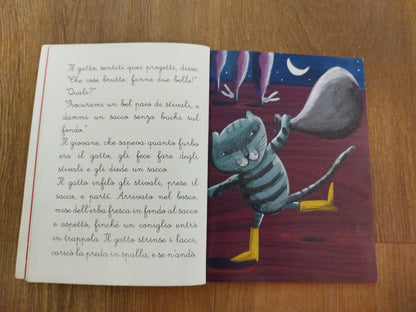 Il gatto, sentiti quei progetti, disse:
"Che cose brutte fanne due belle!"
"Quali?"
"Procurami un bel paio di stivali, e
dammi un sacco senza buchi sul
fondo."
Il giovane, che sapeva quanto furbo
era il gatto, gli fece fare degli
stivali e gli diede un sacco.
Il gatto infilò gli stivali, prese il
sacco, e partì. Arrivato nel bosco,
mise dell'erba fresca in fondo al sacco
e aspettò, finché un coniglio entrò
in trappola. Il gatto strinse i lacci,
caricò la preda in spalla, e se n'andò.